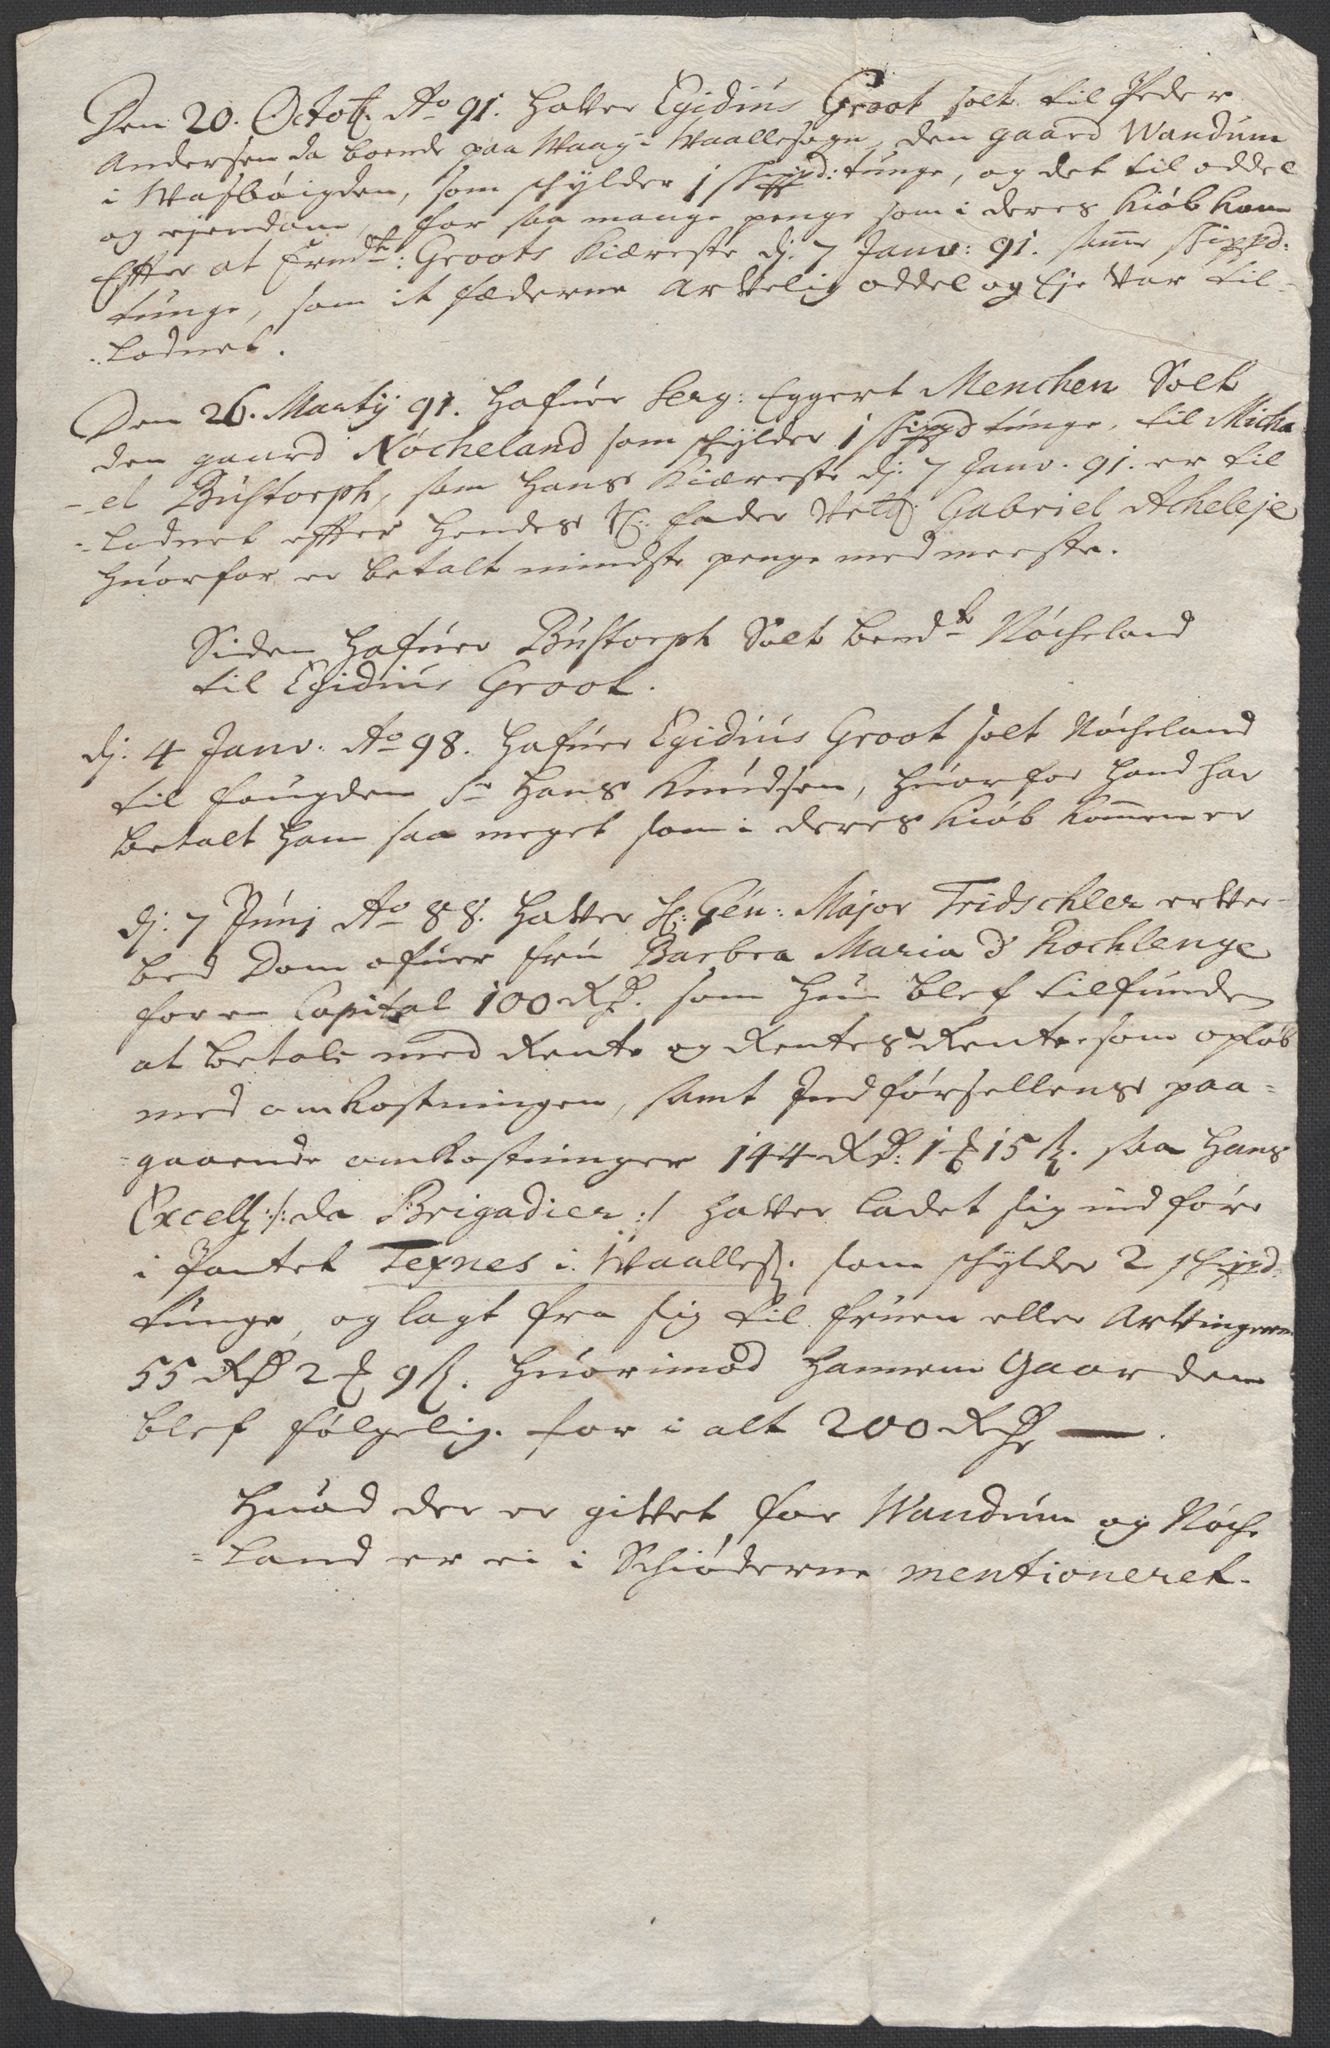 Den 20. Octob. Ao 91. hafver Egidius Groot solt til Peder
Andersen da boende paa Waag i Waallesogn, den gaard Wandum
i Wasbøigden, som schylder 1 schippd: tunge, og det til oddel
og ejendom, for saa mange penge som i deres Kiøb kom
Effter at Ermdte: Groots Kiæreste dj. 7 Janv: 91. samme schippd:
tunge, som it fæderne Arvelig oddel og Eje var til-
-lodnet.
Den 26. Martij 91. hafuer Serg: Eggert Menchen Solt
den gaard Nøcheland som schylder 1 schippd tunge, til Micha
-el Bustorph, som hans Kiæreste dj. 7 Janv. 91. er til
-lodnet effter hendes Sl: fader Gabriel Acheleje
huorfor er betalt mindste penge med meeste.
Siden hafuer Bustorph Solt bemdte Nøcheland
til Egidius Groot.
dj. 4 Janv. Ao 98. hafuer Egidius Groot solt Nøcheland
til fougden Sr Hans Knudsen, huorfor hand har
betalt ham saa meget som i deres Kiøb kommen er
dj. 7 Junj Ao 88. hafver H: Gen: Major Tridschler erhver-
bed Dom ofuer fru Barbra Maria d' Rochlenge
for en Capital 100 Rd. som hun blef tilfunden
at betale med Rente og Rentes Rente som opløb
med omkostningen, samt Indførsellens paa-
-gaaende omkostninger 144 Rd: 1 15 s. saa hans
Excell: /: da Brigadier :/ hafver ladet sig indføre
i Pantet Texnes i Waalles. som schylder 2 schippd.
tunge, og lagt fra sig til fruen eller Arvingerne
55 Rd 2 9 s. huorimod hannem Gaarden
blef følgelig. for i alt 200 Rd —.
Huad der er gifvet for Wandum og Nøche
-land er ei i Schiøderne mentioneret.